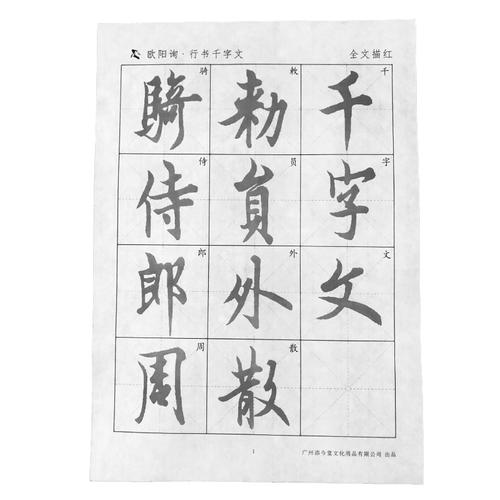 欧阳询·行书千字文
全文描红
千字文
千字文
勑員外散
敕员外散
騎侍郎周
骑侍郎周
1
广州 今堂文化用品有限公司 出品